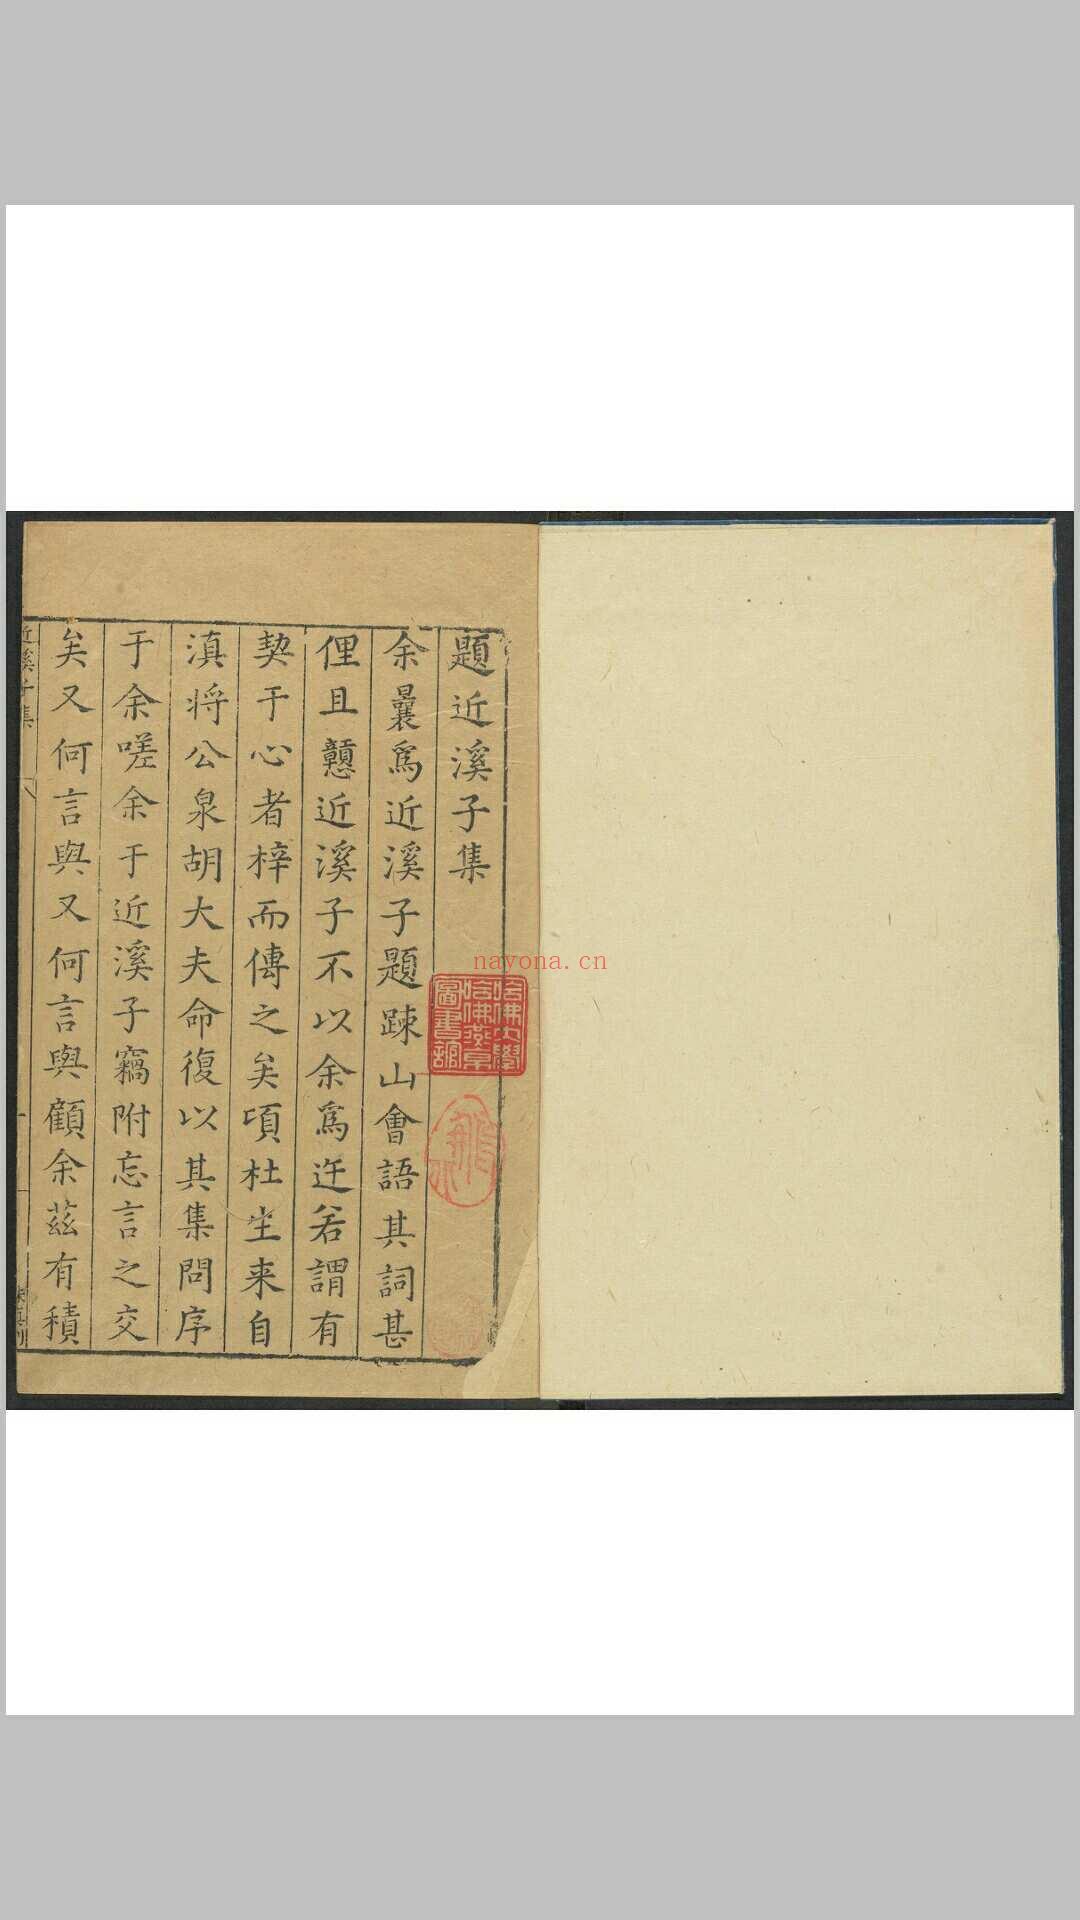 題近溪子集
余曩爲近溪子題踈山會語其詞甚
俚且戇近溪子不以余爲迂若謂有
契于心者梓而傳之矣頃杜生来自
滇将公泉胡大夫命復以其集問序
于余嗟余于近溪子竊附忘言之交
矣又何言與又何言與顧余茲有積
近溪子集
哈佛大學
哈佛燕京
圖書館
nayona.cn